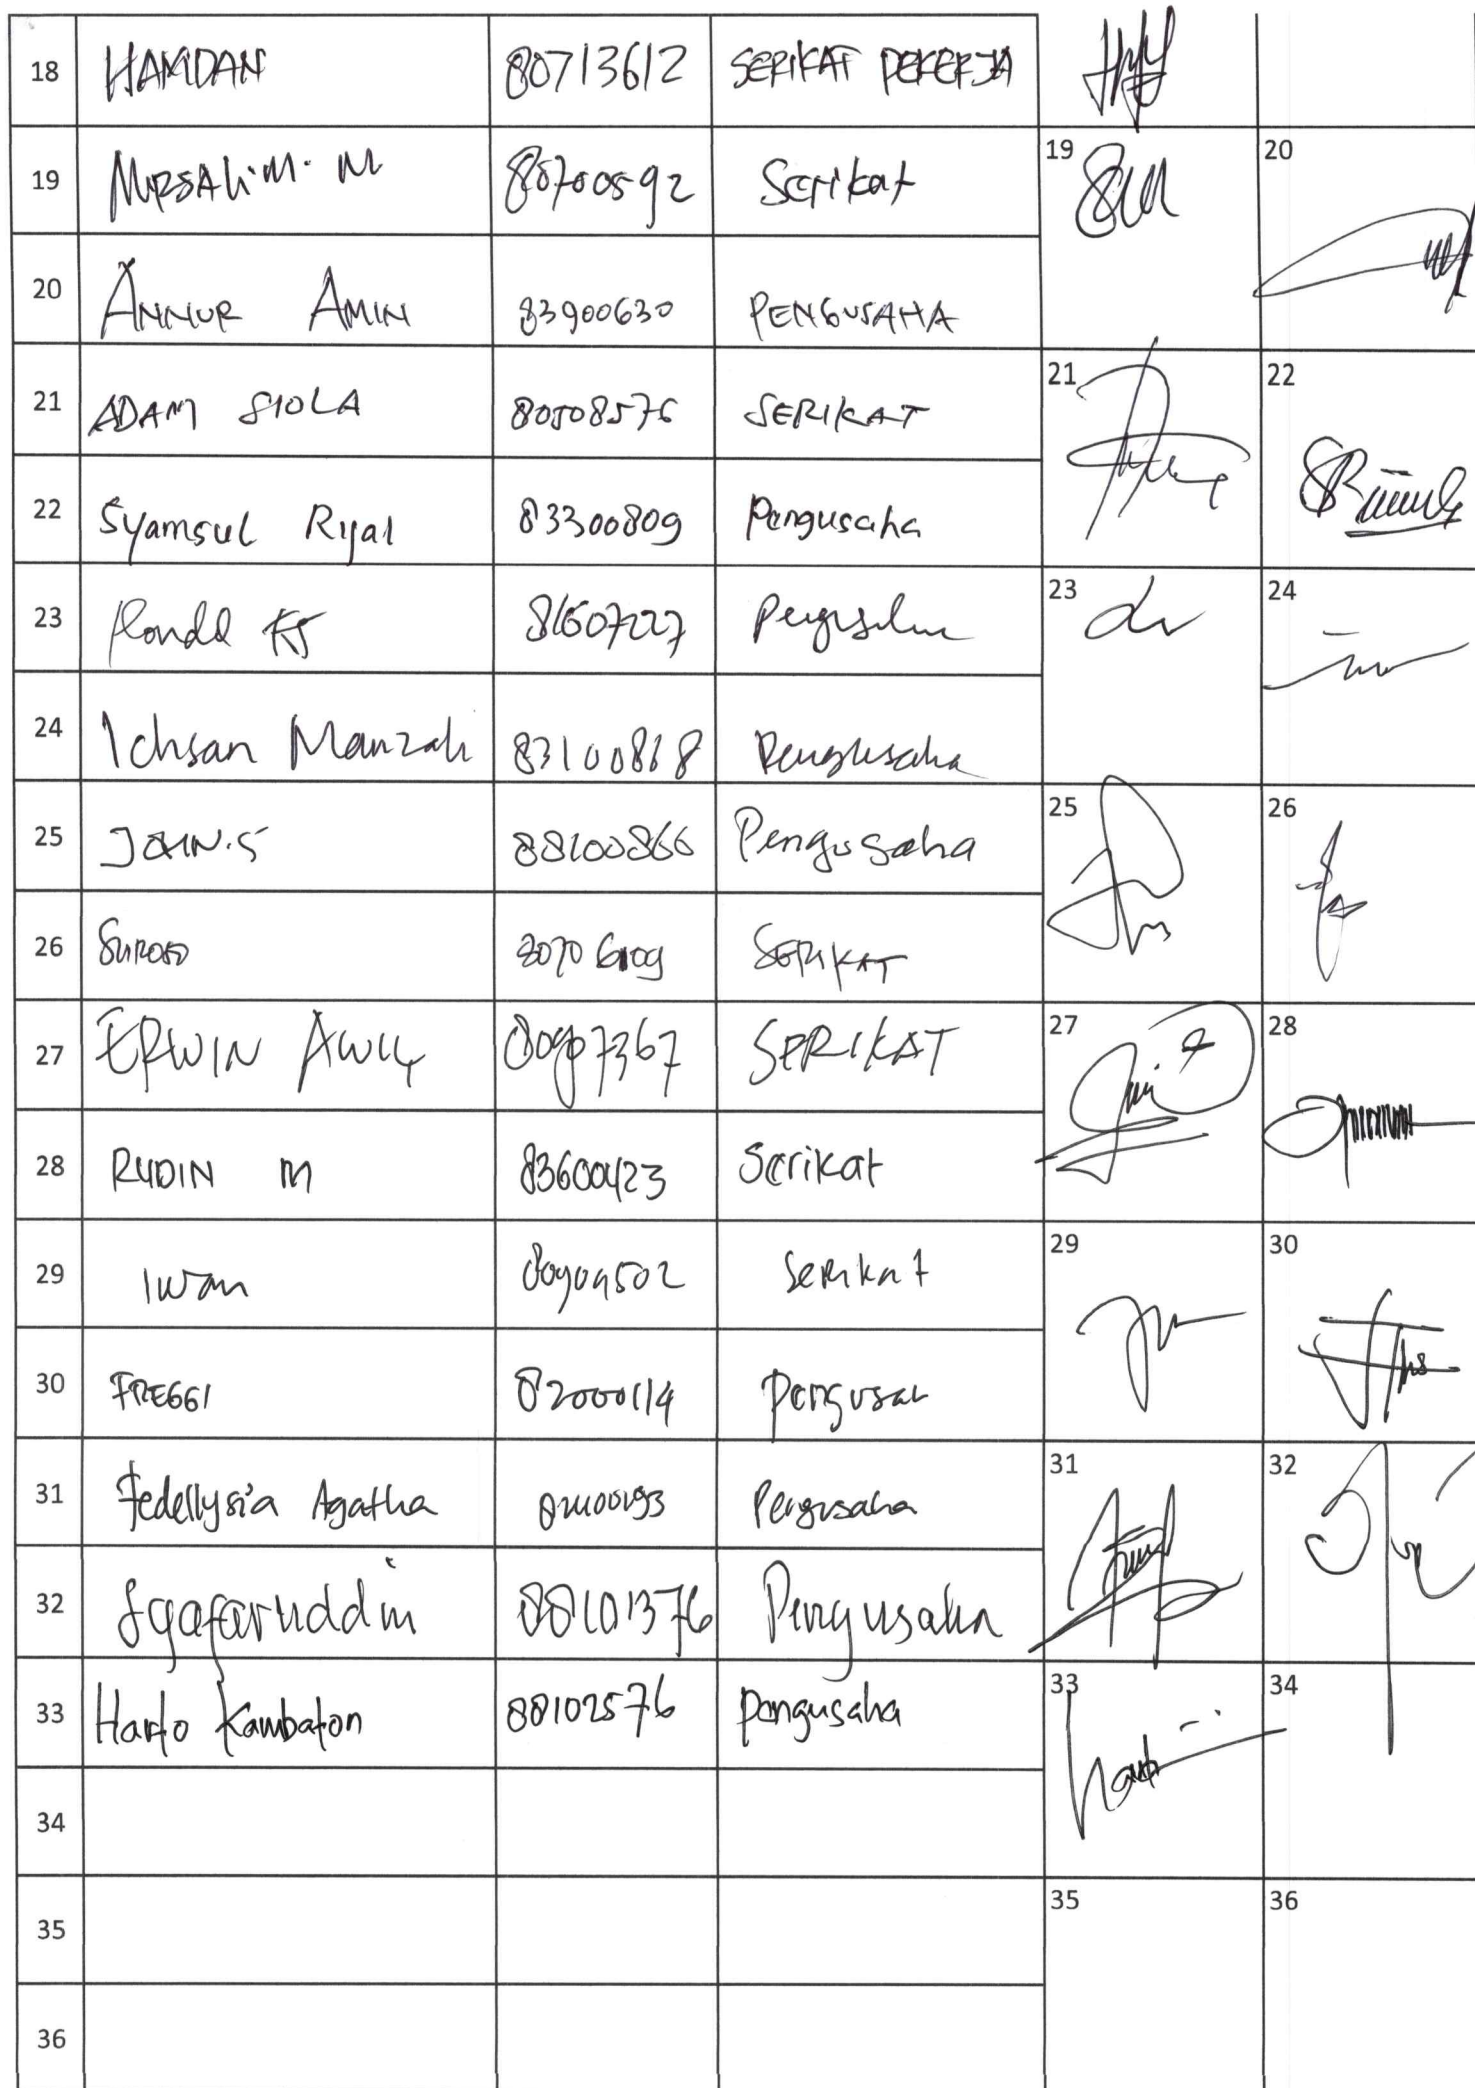 18 HAMDAN 80713612 SERIKAT PEKERJA
19 MURSALIM. M 80700592 Serikat 19 20
20 ANNUR AMIN 83900630 PENGUSAHA
21 ADAM SIOLA 80508576 SERIKAT 21 22
22 Syamsul Rijal 83300809 Pengusaha
23 81607227 23 24
24 Ichsan Manzali 83100818 Pengusaha
25 88100866 Pengusaha 25 26
26 SUROSO SERIKAT
27 ERWIN 80907367 SERIKAT 27 28
28 RUDIN M 83600423 Serikat
29 Iwan 80904502 Serikat 29 30
30 FREGGI 82000114
31 Fedellysia Agatha Pengusaha 31 32
32 Syafaruddin 88101376 Pengusaha
33 Harto Kambaton 88102576 pengusaha 33 34
34
35 35 36
36